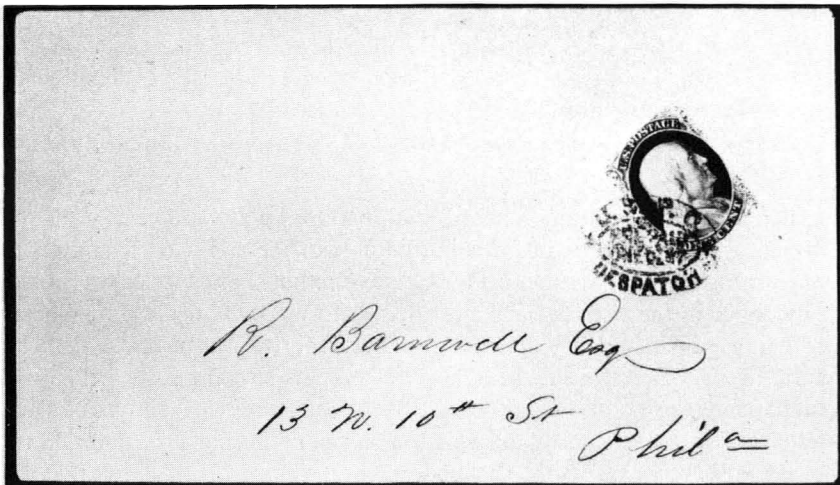 U.S. POSTAGE
CENT
DESPATCH
R. Barnwell Esq
13 N. 10th St
Phila